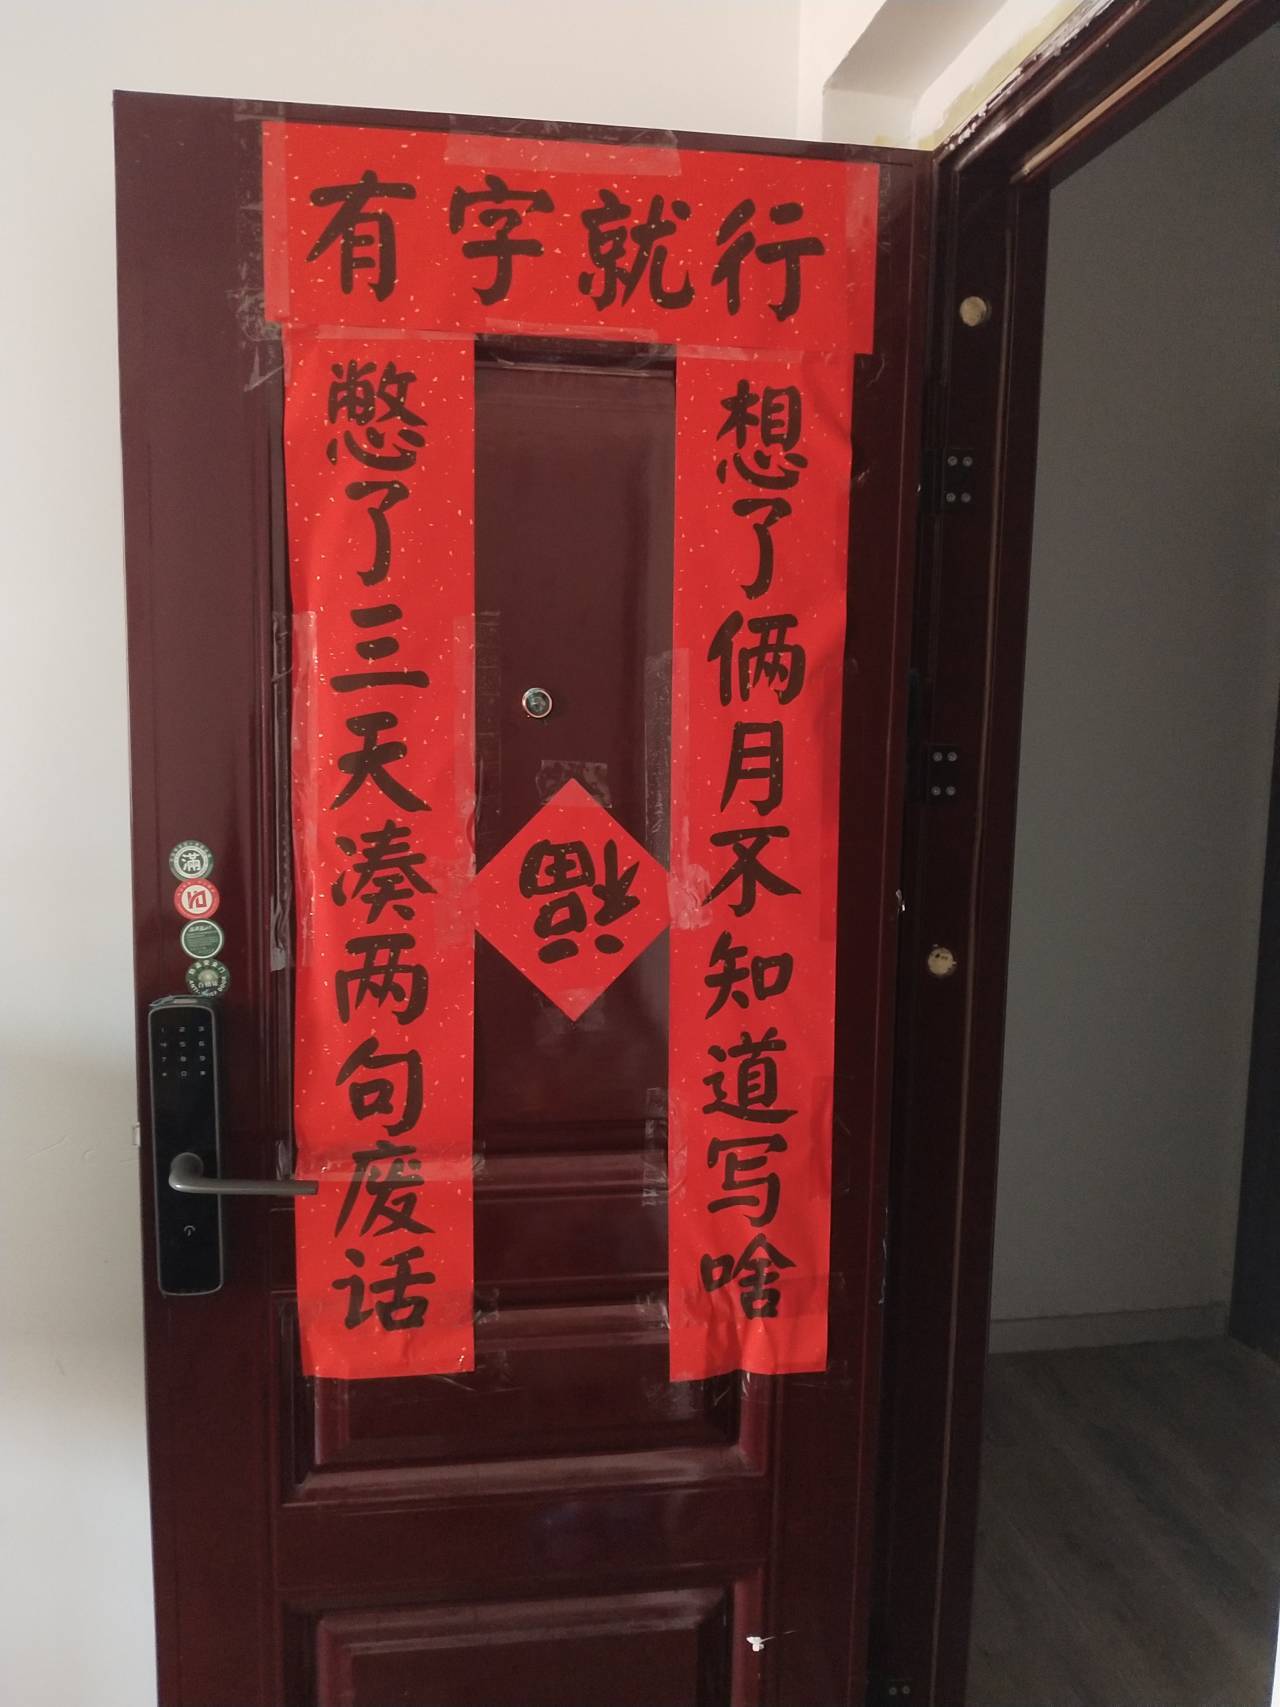 有字就行
想了俩月不知道写啥
憋了三天凑两句废话
福
满